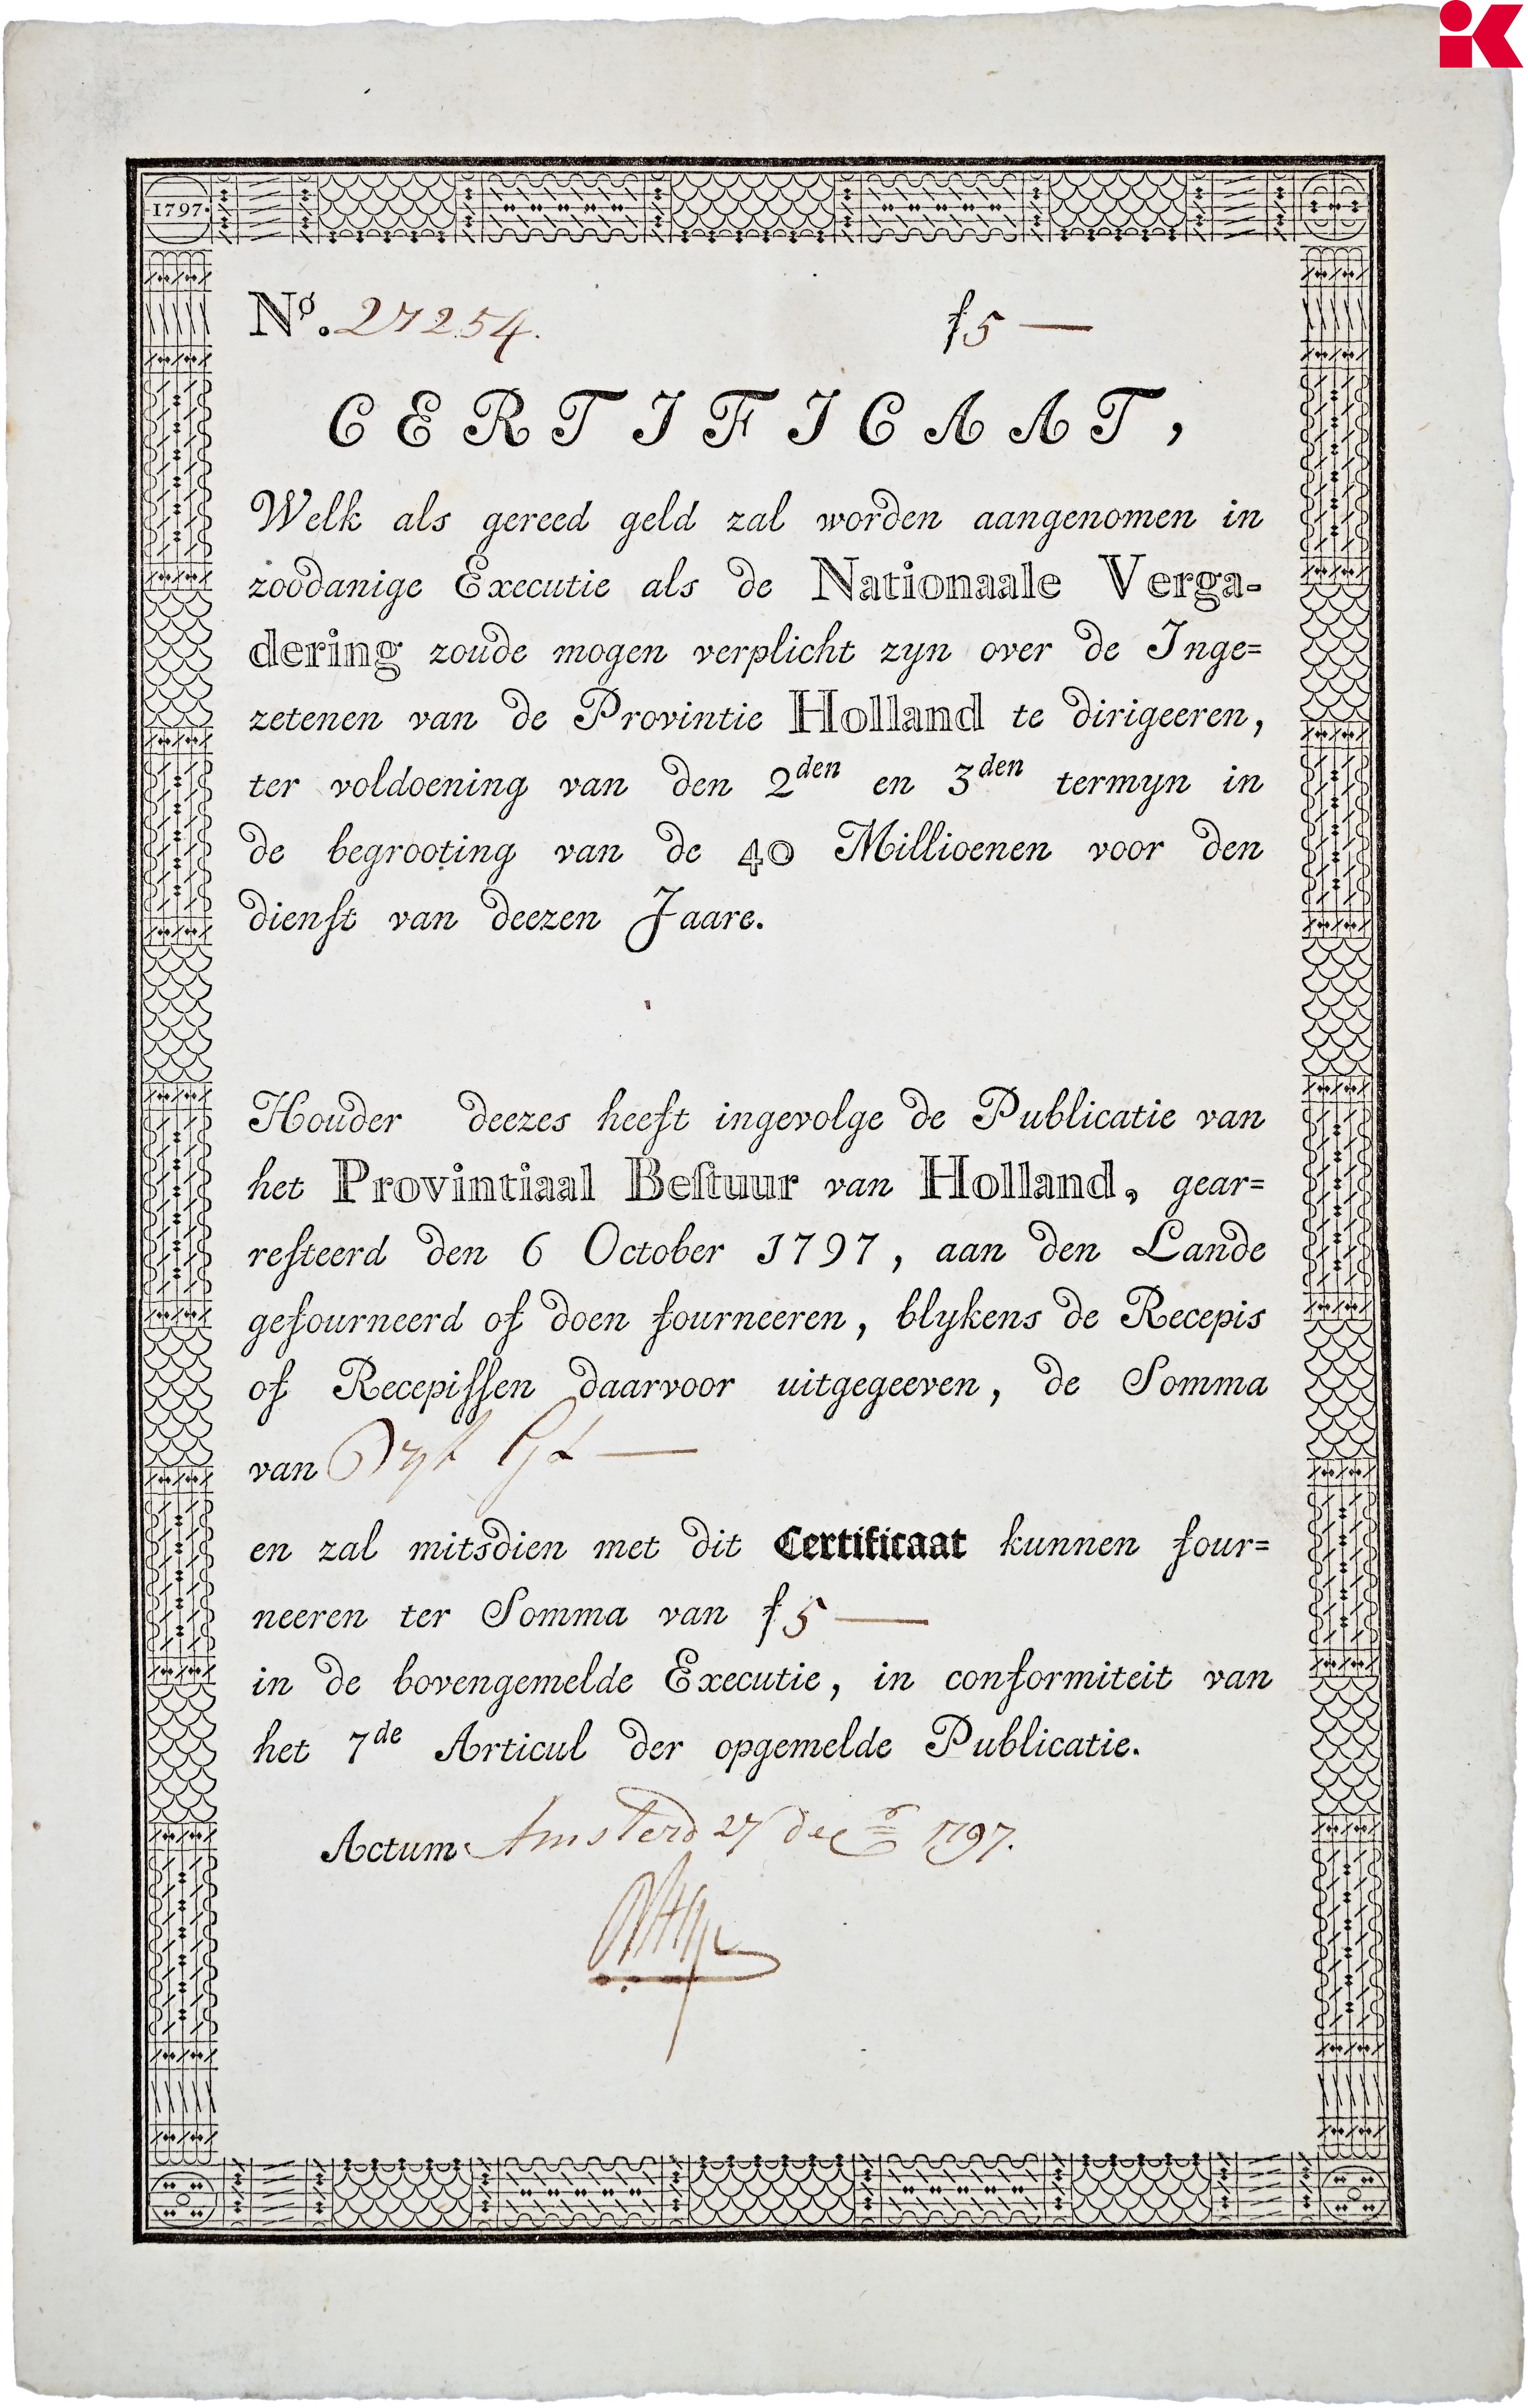 1797.
Nº. 27254. f 5 —
CERTIFICAAT,
Welk als gereed geld zal worden aangenomen in
zoodanige Executie als de Nationaale Verga-
dering zoude mogen verplicht zyn over de Inge=
zetenen van de Provintie Holland te dirigeeren,
ter voldoening van den 2den en 3den termyn in
de begrooting van de 40 Millioenen voor den
dienſt van deezen Jaare.
Houder deezes heeft ingevolge de Publicatie van
het Provintiaal Beſtuur van Holland, gear=
reſteerd den 6 October 1797, aan den Lande
gefourneerd of doen fourneeren, blykens de Recepis
of Recepiſſen daarvoor uitgegeeven, de Somma
van Vyf —
en zal mitsdien met dit Certificaat kunnen four=
neeren ter Somma van f 5 —
in de bovengemelde Executie, in conformiteit van
het 7de Articul der opgemelde Publicatie.
Actum Amsterd 27 dec 1797.